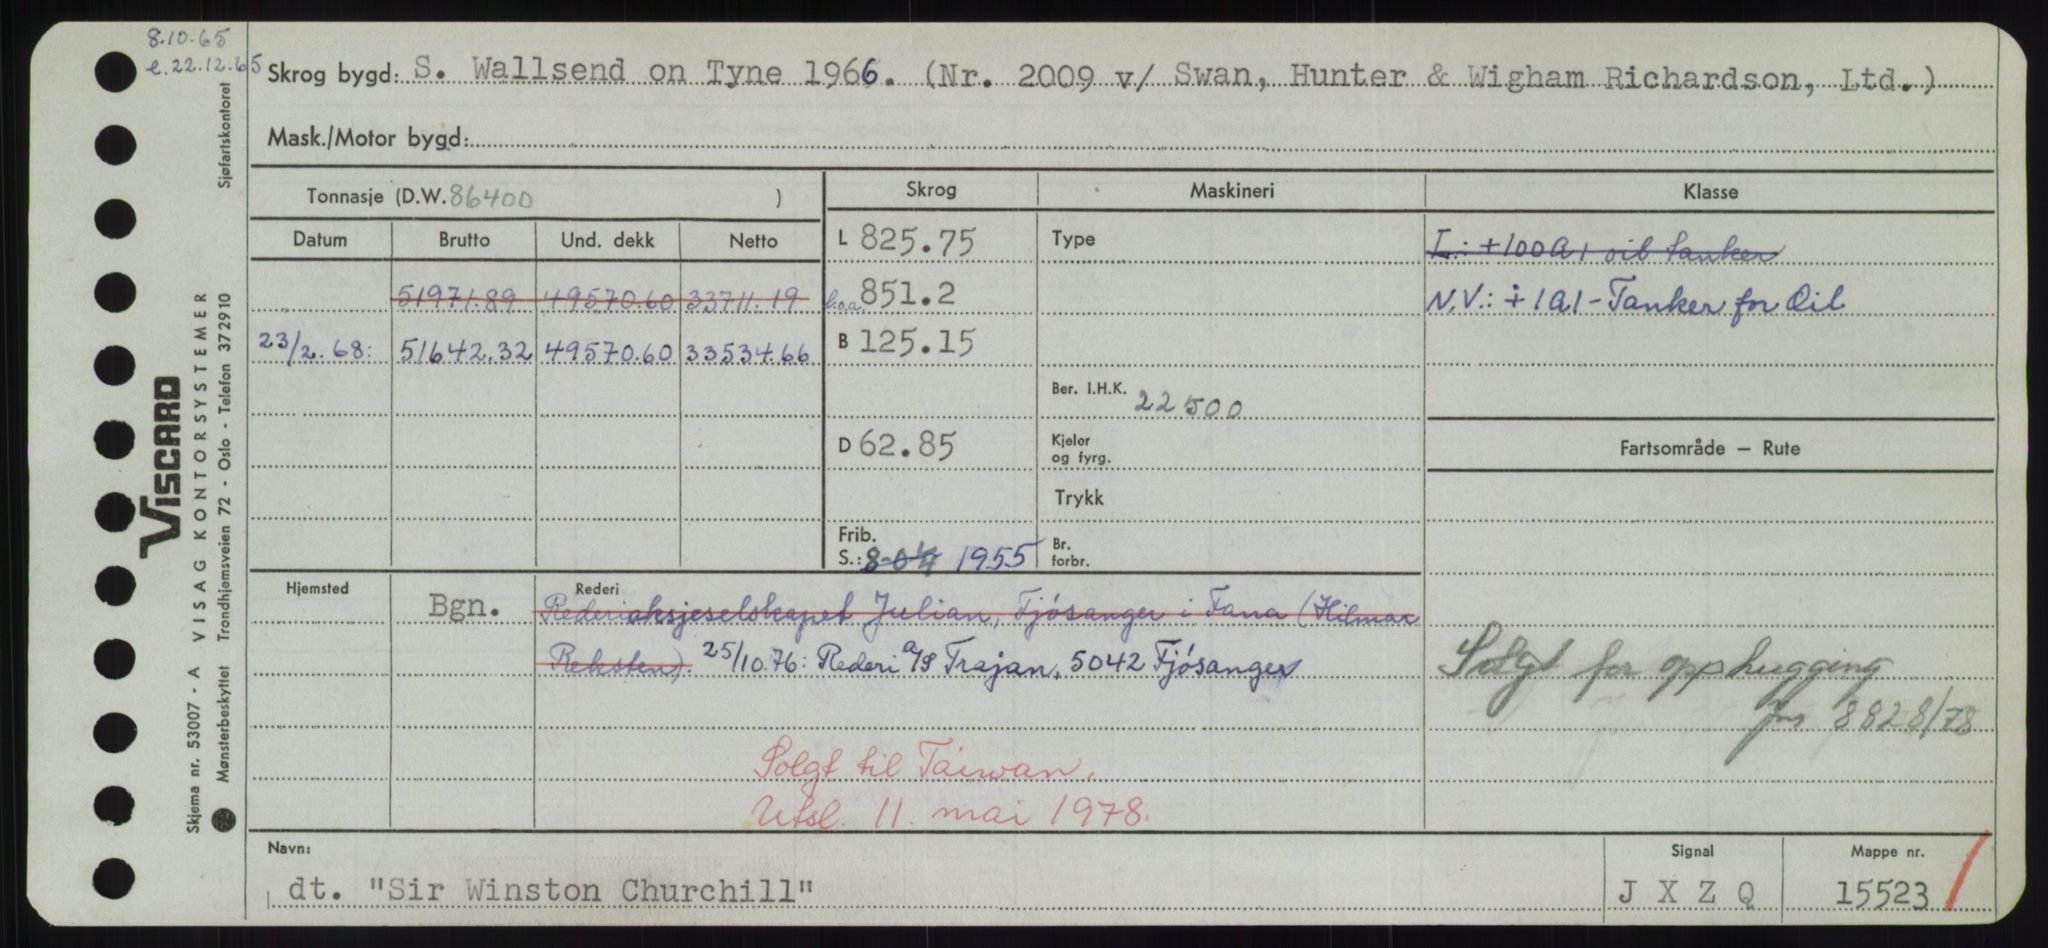 8.10.65
e.22.12.65
Skrog bygd: S. Wallsend on Tyne 1966. (Nr. 2009 v/ Swan, Hunter & Wigham Richardson, Ltd.)
Mask./Motor bygd:
Tonnasje (D.W. 86400 )
Skrog
Maskineri
Klasse
Datum
Brutto
Und. dekk
Netto
L 825.75
Type
I.: +100A1 oil tanker
51971.89 49570.60 33711.19
l.o.a. 851.2
N.V.: +1A1-Tanker for Oil
23/2.68: 51642.32 49570.60 33534.66
B 125.15
Ber. I.H.K. 22500
D 62.85
Kjeler
og fyrg.
Fartsområde — Rute
Trykk
Frib.
S.: 8-04 1955
Br.
forbr.
Hjemsted
Bgn.
Rederi
Rederiaksjeselskapet Julian, Fjøsanger i Fana (Hilmar
Reksten). 25/10.76: Rederi A/S Trajan, 5042 Fjøsanger
Solgt for opphugging
jnr 8828/78
Solgt til Taiwan.
Utsl. 11. mai 1978.
Navn:
dt. "Sir Winston Churchill"
Signal
J X Z Q
Mappe nr.
15523
VISCARD
Skjema nr. 53007 - A VISAG KONTORSYSTEMER
Mønsterbeskyttet Trondhjemsveien 72 - Oslo - Telefon 372910
Sjøfartskontoret